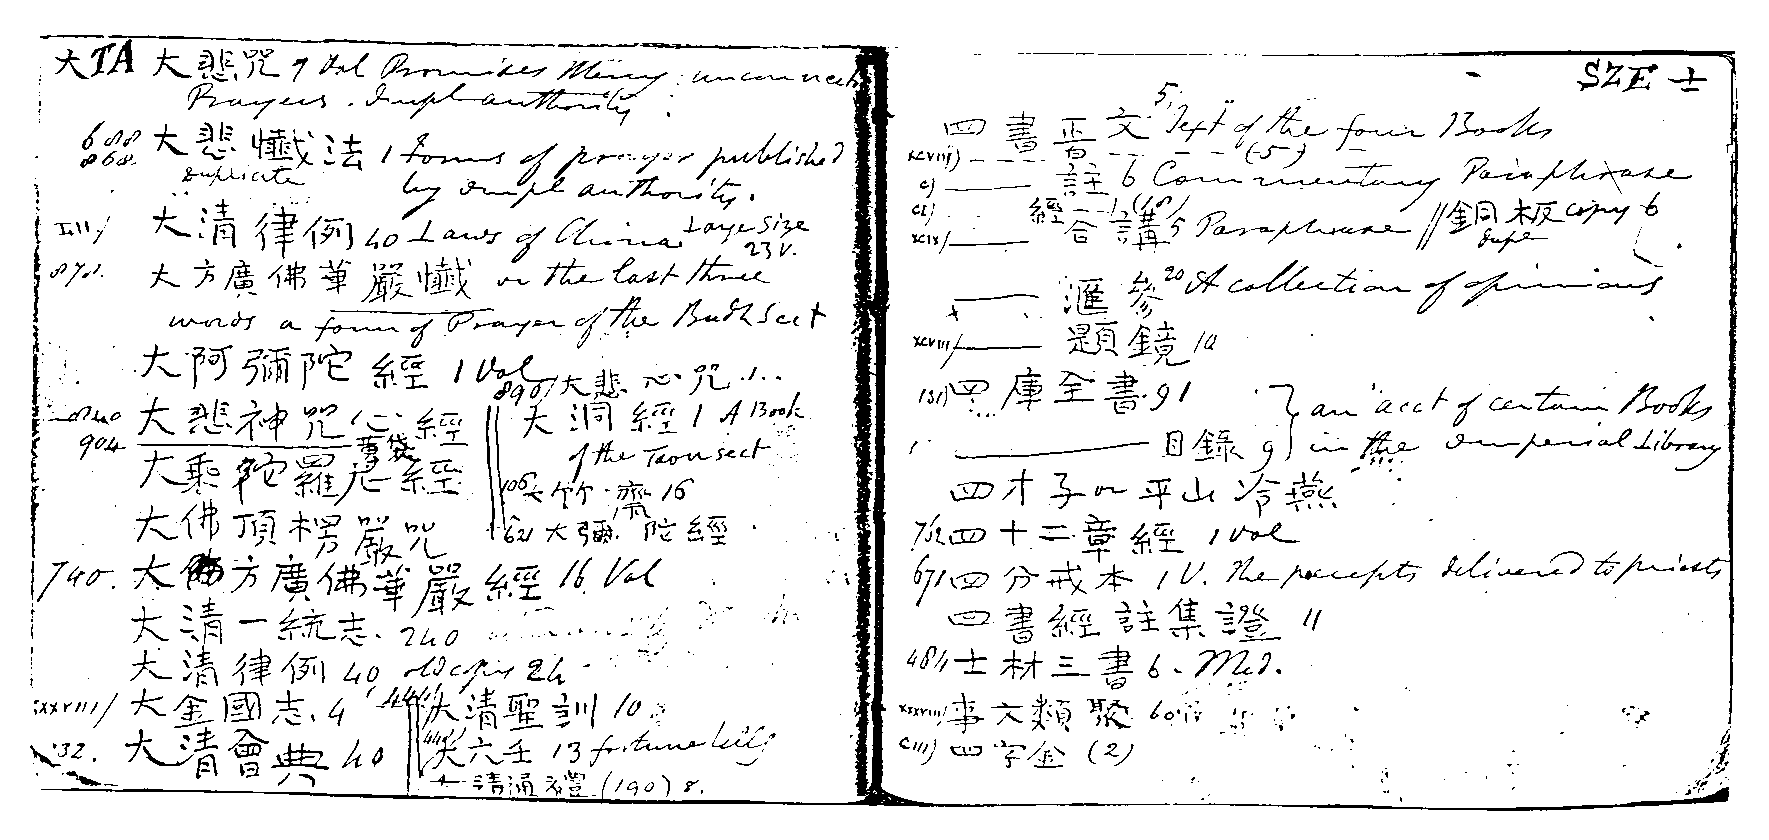 大 TA 大悲咒 1 Vol Promises Mercy
Prayers. Impl authority
688
868. 大悲懺法 1 Forms of prayer published
duplicate by impl authority.
大清律例 40 Laws of China Large Size
23 V.
872. 大方廣佛華嚴懺 or the last three
words a form of Prayer of the Budh Sect
大阿彌陀經 1 Vol
890/ 大悲心咒 1
904 大悲神咒心經
大洞經 1 A Book
of the Taou sect
大乘陀羅尼經
106 大竹齋 16
大佛頂楞嚴咒
621 大彌陀經
740. 大方廣佛華嚴經 16 Vol
大清一統志. 240
大清律例 40 old copies 24
xxxviii/ 大金國志. 4
大清聖訓 10
32. 大清會典 40
大六壬 13 fortune tells
大清通禮 (190) 8.
SZE 士
四書音文 5 Text of the four Books
xcviii) (5)
c) 註 6 Commentary Paraphrase
ci) 經
xcix/ 合講 5 Paraphrase // 銅板 copy 6
dupl
滙參 20 A collection of opinions
xcviii/ 題鏡 10
131) 四庫全書 91 } an acct of certain Books
目錄 9 } in the Imperial Library
四才子 or 平山冷燕
752 四十二章經 1 Vol
671 四分戒本 1 V. The precepts delivered to priests
四書經註集證 11
484 士材三書 6. Med.
xxxviii/ 事文類聚 60
ciii) 四字金 (2)